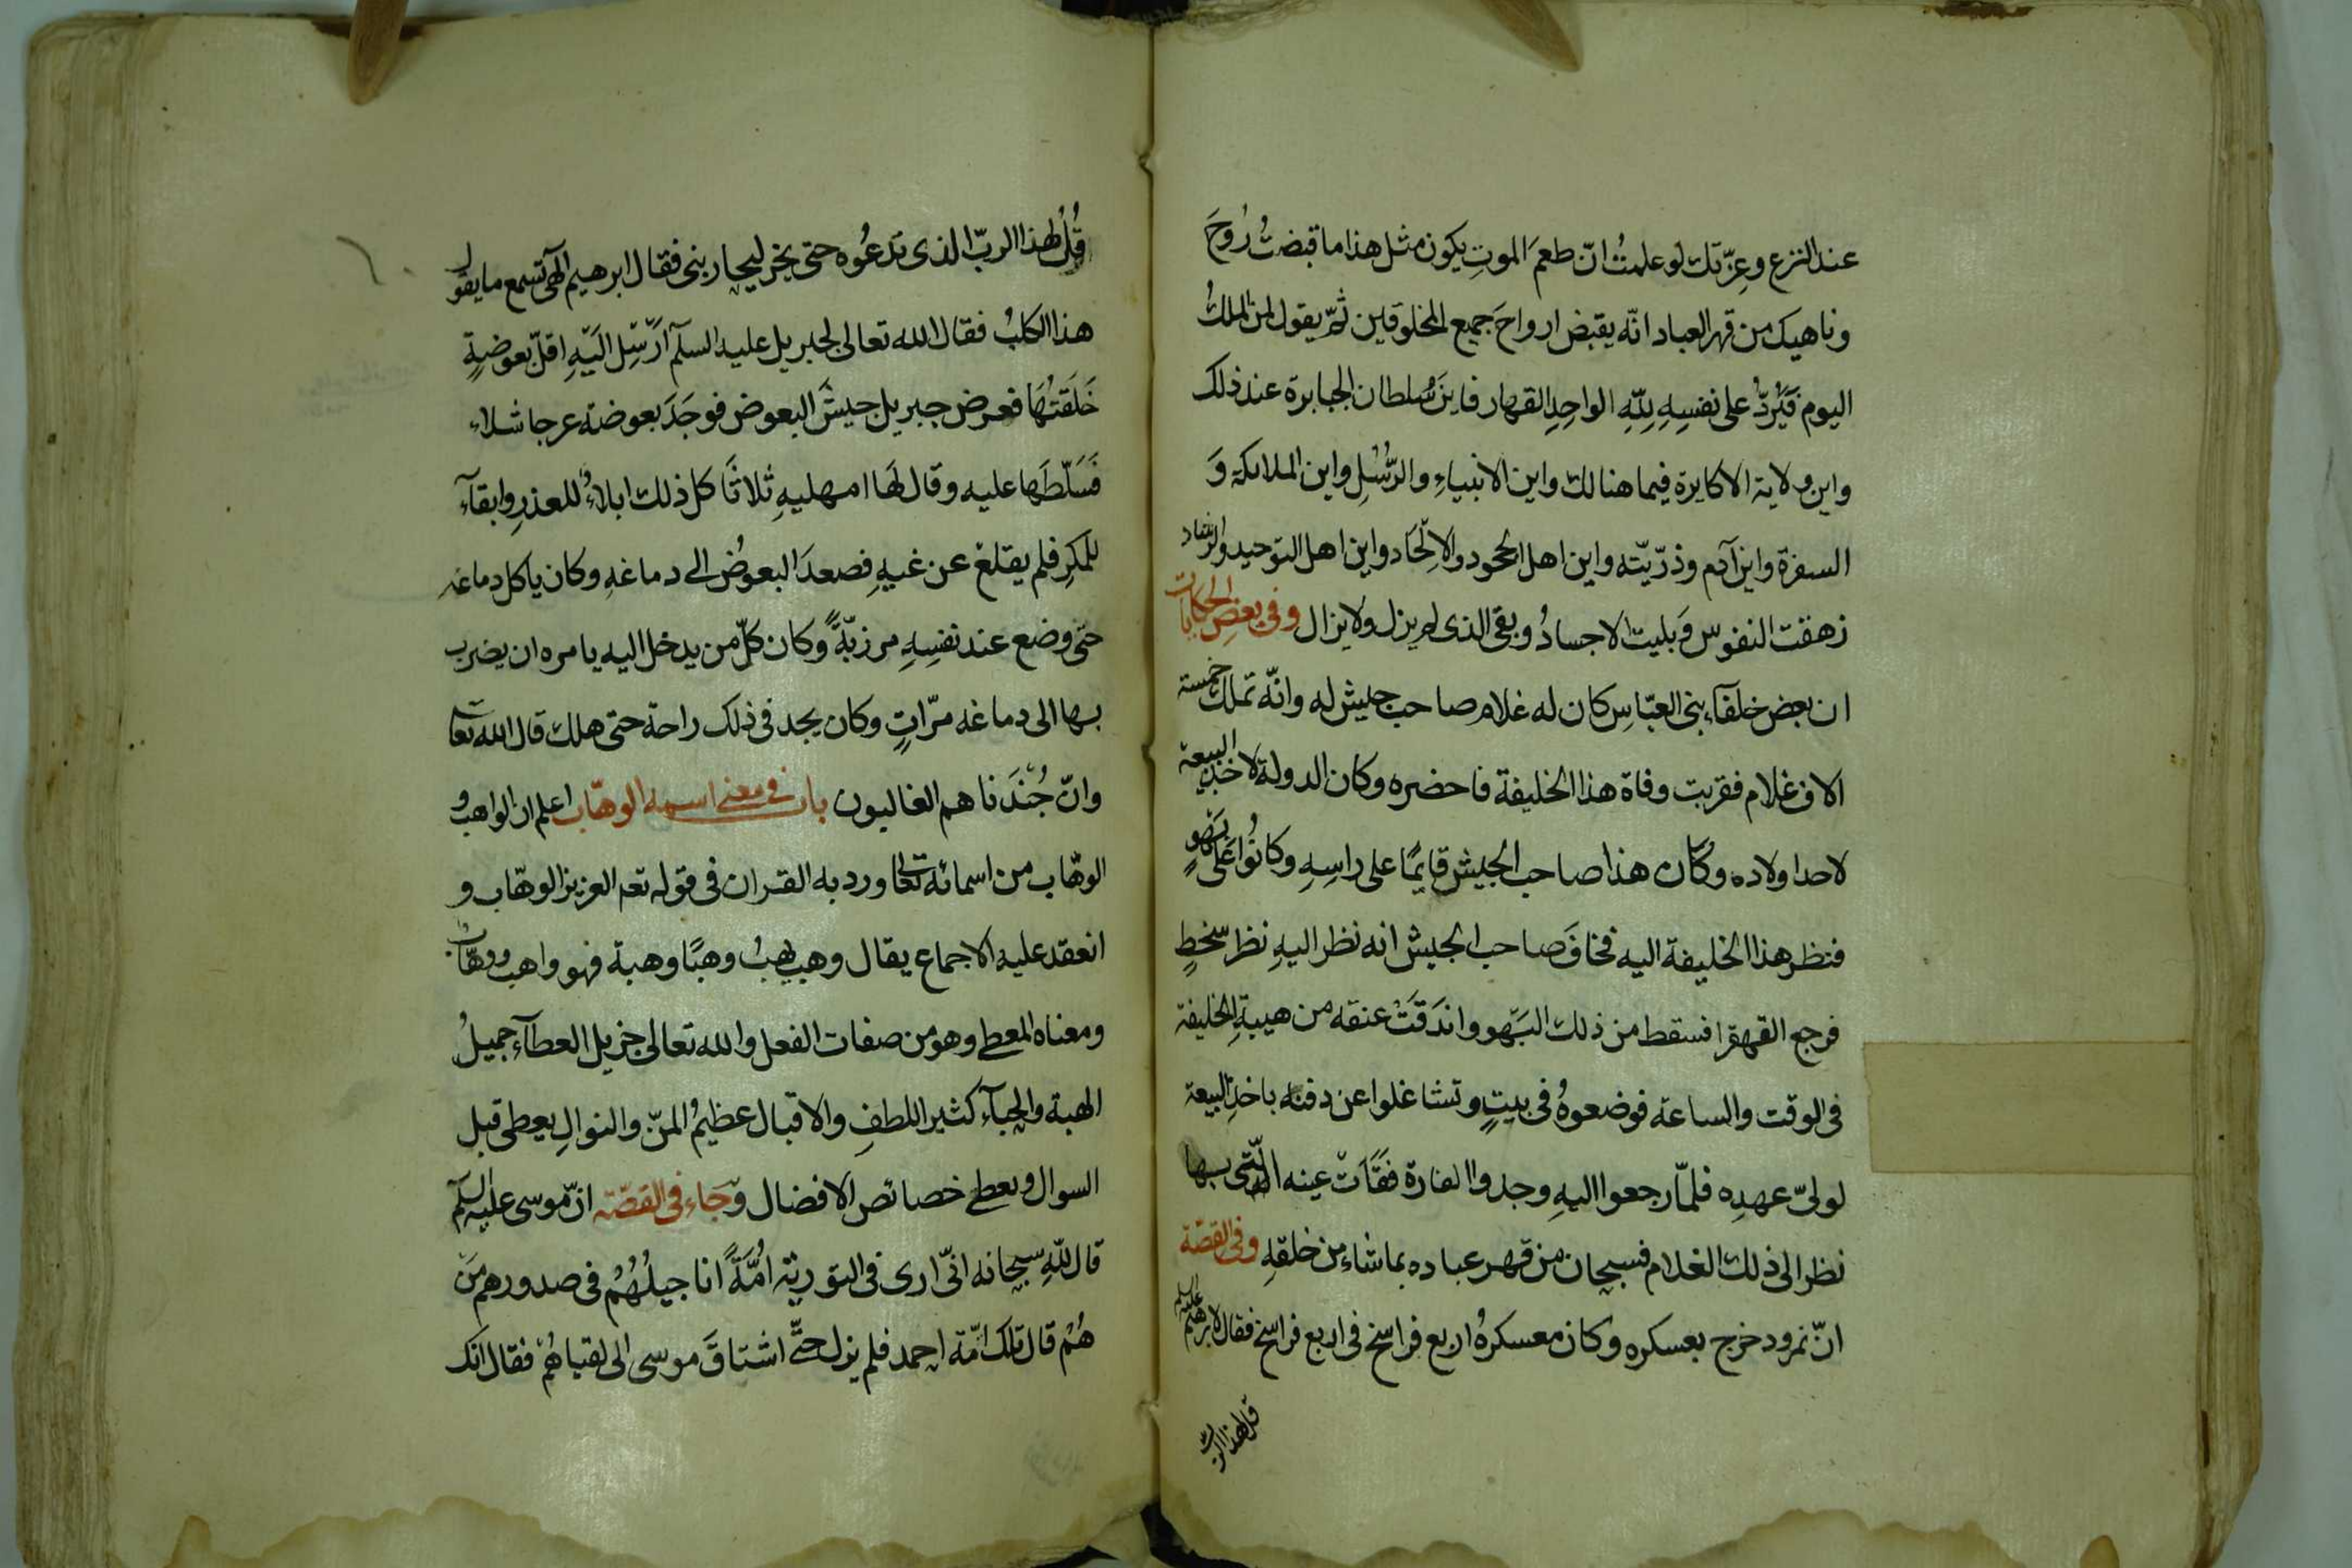 عند النزع وعزّتك لو علمتُ انّ طعمَ الموتِ يكون مثل هذا ما قبضتُ رُوحَ
وناهيك من قهر العباد انّه يقبض ارواحَ جميع المخلوقين ثمّ يقول لمن الملكُ
اليوم فَيَرُدّ على نفسِهِ لِلّهِ الواحِدِ القهار فاين سُلطان الجبابرة عند ذلك
واين ولاية الاكابرة فيما هنالك واين الانبياءِ والرُّسُلِ واين الملائكة وَ
السفرة واين آدم وذرّيّته واين اهل الجحود والاِلْحَاد واين اهل التوحيد والرشاد
زهقت النفوس وَ بليت الاجسادُ وبقى الذى لم يزل ولا يزال وفى بعض الحكايات
ان بعض خلفآء بنى العبّاسِ كان له غلام صاحب جيش له وانّه تملك خمسة
الاف غلام فقربت وفاة هذا الخليفة فاحضره وكان الدولة لاخذ البيعة
لاحد اولاده وكان هذا صاحب الجيش قايمًا على راسِهِ وكانُوا على بَهْوٍ
فنظر هذا الخليفة اليه فخافَ صاحب الجيش انه نظر اليهِ نظر سخطٍ
فرجع القهقرا فسقط من ذلك البَهْو واندَقَتْ عنقه من هيبةِ الخليفة
فى الوقت والساعة فوضعوهُ فى بيتٍ وتشاغلوا عن دفنه باخذِ البيعة
لولىّ عهدِه فلمّا رجعوا اليهِ وجدوا الفارة فَقَاَتْ عينه الّتى بها
نظر الى ذلك الغلام فسبحان من قهر عباده بما شاء من خلقهِ وفى القصّة
انّ نمرود خرج بعسكره وكان معسكرهُ اربع فراسخ فى اربع فراسخ فقال لابرهيم عليه السلم
قل لهذا الرب
قُلْ لهذا الربّ الذى تدعُوه حتى يخرج ليحاربنى فقال ابرهيم الهى تسمع ما يقول
هذا الكلبُ فقال الله تعالى لجبريل عليه السلم اَرْسِل اليَهِ اقلّ بعوضةٍ
خَلَقتُهَا فعرض جبريل جيشَ البعوض فوجَدَ بعوضة عرجا شلاء
فَسَلّطَها عليه وقال لهَا امهليهِ ثلاثًا كل ذلك ابلاءُ للعذرِ وابقآء
للمكرِ فلم يقلع عن غيهِ فصعدَ البعوُض الى دماغهِ وكان ياكل دماغه
حتى وضع عند نفسِهِ مرزبّةً وكان كلّ من يدخل اليه يامره ان يضرب
بها الى دماغه مرّاتٍ وكان يجد فى ذلك راحة حتى هلك قال الله تعالى
وانّ جُندَنا هم الغالبون باب فى معنى اسمه الوهّاب اعلم ان الواهب و
الوهّاب من اسمائه تعالى ورد به القران فى قوله تعه العزيز الوهّاب و
انعقد عليه الاجماع يقال وهب يهبُ وهبًا وهبة فهو واهب ووهّاب
ومعناه المعطى وهو من صفات الفعل والله تعالى جزيل العطآء جميلُ
الهبة والحِبآء كثير اللطفِ والاقبال عظيمُ المنّ والنوالِ يعطى قبل
السوال ويعطى خصائص الافضال وَجَاء فى القصّة انّ موسى عليه السلم
قال للّهِ سبحانه انّى ارى فى التورية اُمّةً اناجيلُهُمْ فى صدورهم مَن
هُمْ قال تلك امّة احمد فلم يزل حتَّى اشتاقَ موسى الى لقياهُمْ فقال انك